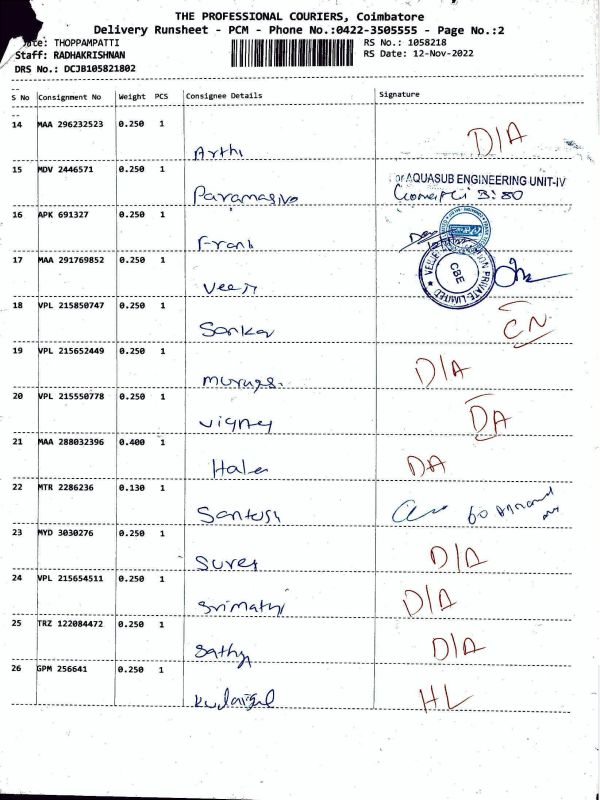 THE PROFESSIONAL COURIERS, Coimbatore
Delivery Runsheet - PCM - Phone No.:0422-3505555 - Page No.:2
THOPPAMPATTI RS No.: 1058218
Staff: RADHAKRISHNAN RS Date: 12-Nov-2022
DRS No.: DCJB105821802
S No Consignment No Weight PCS Consignee Details Signature
14 MAA 296232523 0.250 1
Arthi D/A
15 MDV 2446571 0.250 1
AQUASUB ENGINEERING UNIT-IV
Paramasivo 3:30
16 APK 691327 0.250 1
Frank
17 MAA 291769852 0.250 1
CBE
PRIVATE LIMITED
Veeji
18 VPL 215850747 0.250 1
Sankar CN
19 VPL 215652449 0.250 1
Muruges D/A
20 VPL 215550778 0.250 1
Vigney DA
21 MAA 288032396 0.400 1
Hale DA
22 MTR 2286236 0.130 1
Santosh
23 MYD 3030276 0.250 1
Sures D/A
24 VPL 215654511 0.250 1
Srimathi D/A
25 TRZ 122084472 0.250 1
Sathy D/A
26 GPM 256641 0.250 1
HL